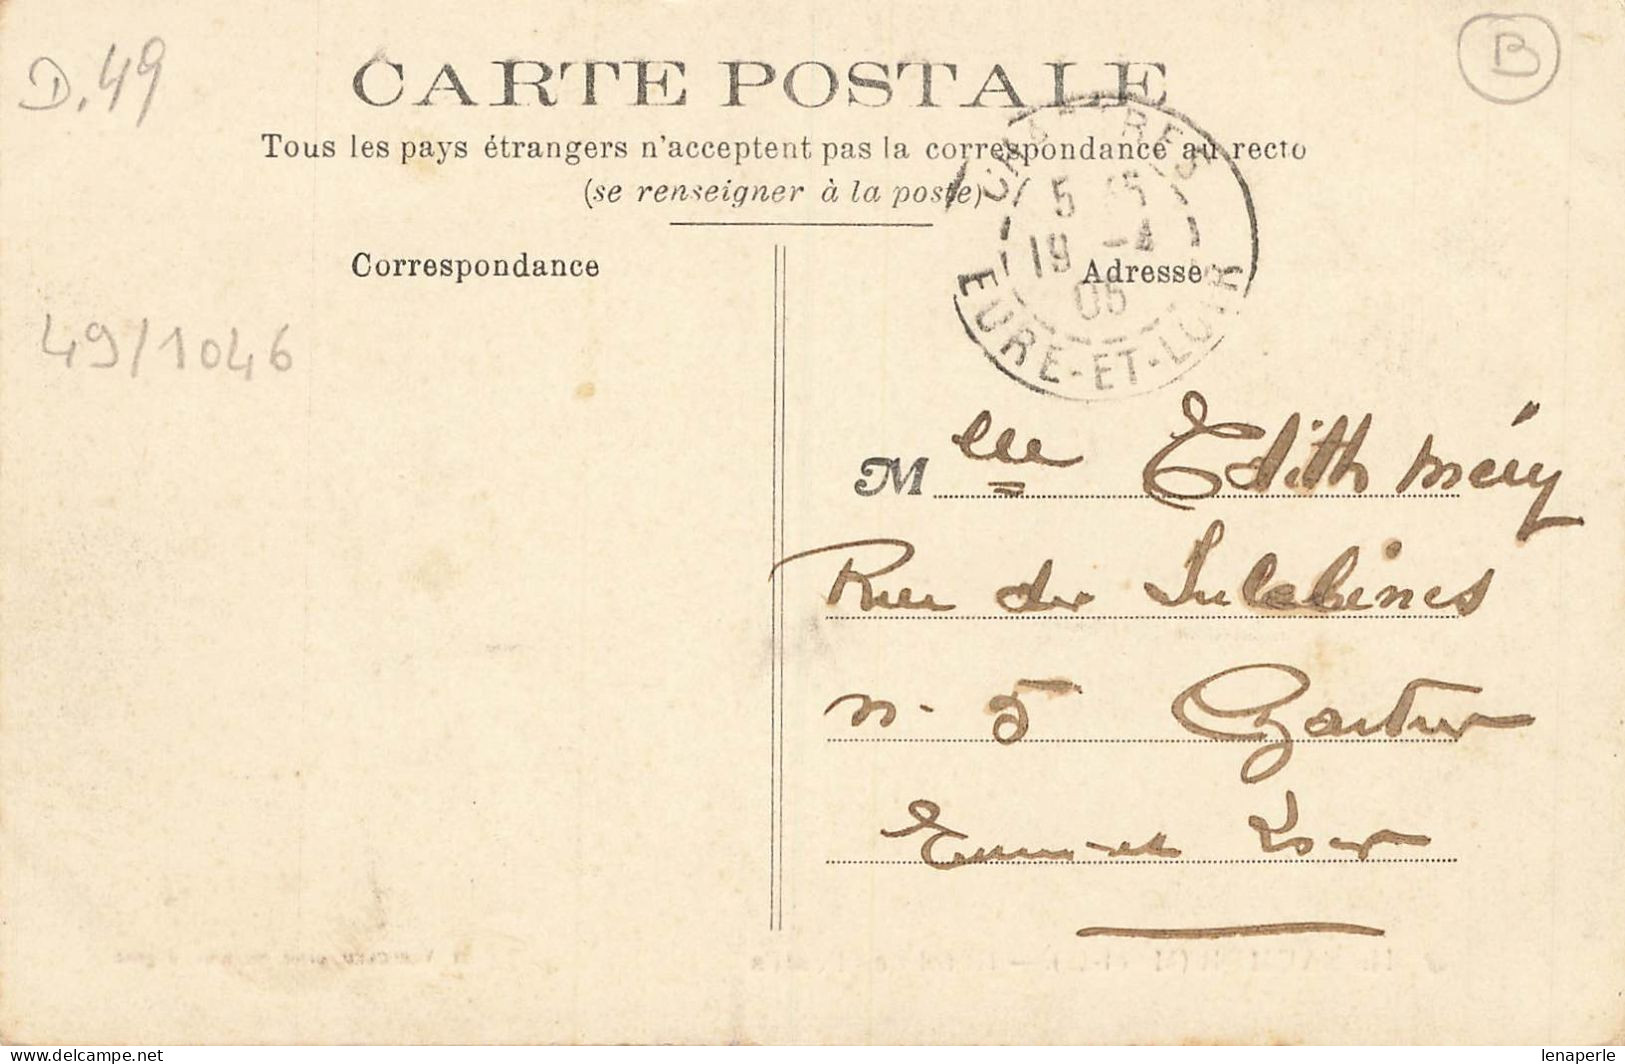 D.49
B
CARTE POSTALE
Tous les pays étrangers n'acceptent pas la correspondance au recto
(se renseigner à la poste)
CHARTRES
5 15
19 -4
05
EURE-ET-LOIR
Correspondance
Adresse
49/1046
Mlle Edith Méry
Rue des
n. 5 Chartres
Eure-et-Loir
lenaperle